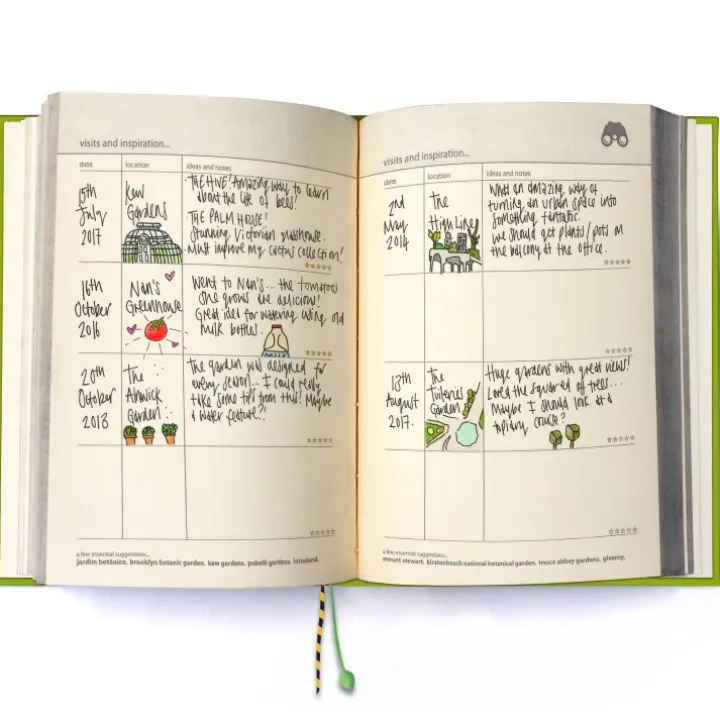 visits and inspiration...
date location ideas and notes
15th July 2017
Kew Gardens
THE HIVE! Amazing way to learn
about the life of bees!
THE PALM HOUSE!
Stunning Victorian glasshouse.
Must improve my cactus collection!
16th October 2016
Nan's Greenhouse
Went to Nan's... the tomatoes
she grows are delicious!
Great idea for watering using old
milk bottles.
20th October 2013
The Alnwick Garden
The garden was designed for
every season... I could really
take some tips from this! Maybe
a water feature?!
a few essential suggestions...
jardim botânico. brooklyn botanic garden. kew gardens. pukeiti gardens. lotusland.
visits and inspiration...
date location ideas and notes
2nd May 2014
The High Line
What an amazing way of
turning an urban space into
something fantastic.
We should get plants/pots on
the balcony at the office.
13th August 2017.
The Tuileries Garden
Huge gardens with great views!
Loved the squared off trees...
Maybe I should look at a
topiary course?
a few essential suggestions...
mount stewart. kirstenbosch national botanical garden. tresco abbey gardens. giverny.